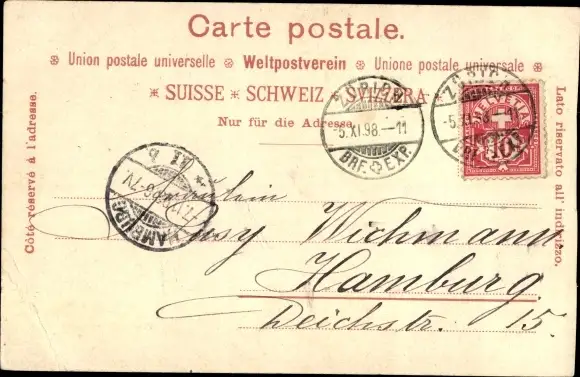 Carte postale.
❀ Union postale universelle ❀ Weltpostverein ❀ Unione postale universale ❀
* SUISSE * SCHWEIZ * SVIZZERA *
Nur für die Adresse.
Côté réservé à l'adresse.
Lato riservato all' indirizzo.
ZÜRICH
-5.XI.98.-11
BRF. EXP.
-5.XI.98.-11
HELVETIA
10
HAMBURG
Fräulein
Wichmann
Hamburg
Deichstr. 15.